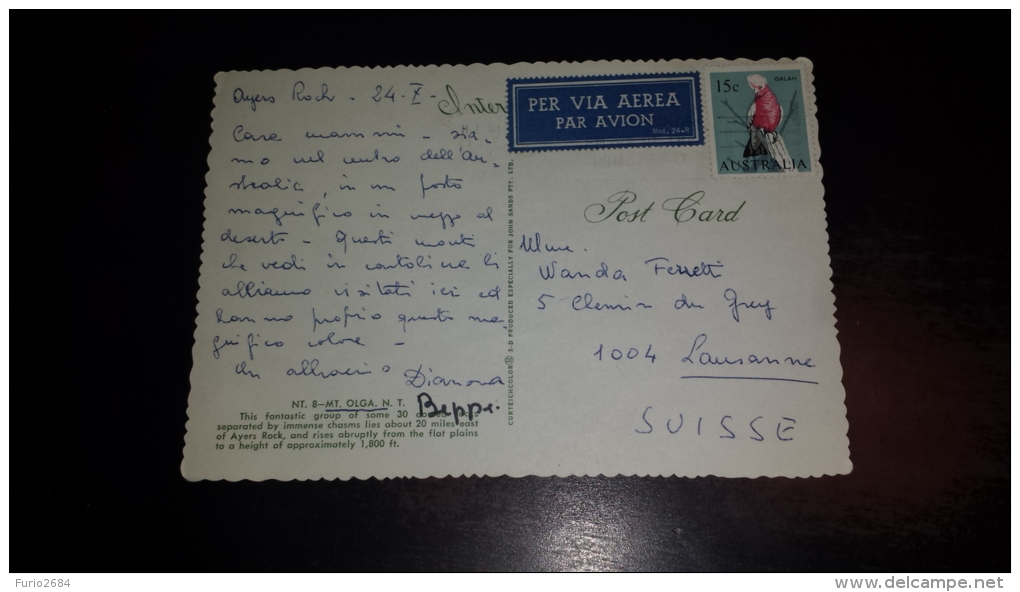 Ayers Rock - 24-X-
Cara mammi - sia-
mo nel centro dell'Au-
stralia, in un posto
magnifico in mezzo al
deserto - Questi monti
che vedi in cartolina li
abbiamo visitati ieri ed
hanno proprio questo ma-
gnifico colore -
Un abbraccio Dianora
Beppe.
NT. 8—MT. OLGA. N. T.
This fantastic group of some 30
separated by immense chasms lies about 20 miles east
of Ayers Rock, and rises abruptly from the flat plains
to a height of approximately 1,800 ft.
CURTEICHCOLOR® 3-D PRODUCED ESPECIALLY FOR JOHN SANDS PTY. LTD.
Inter
PER VIA AEREA
PAR AVION
Mod. 24-R
15c
GALAH
AUSTRALIA
Post Card
Mme.
Wanda Ferretti
5 Chemin du Grey
1004 Lausanne
SUISSE
Furio2684
www.delcampe.net